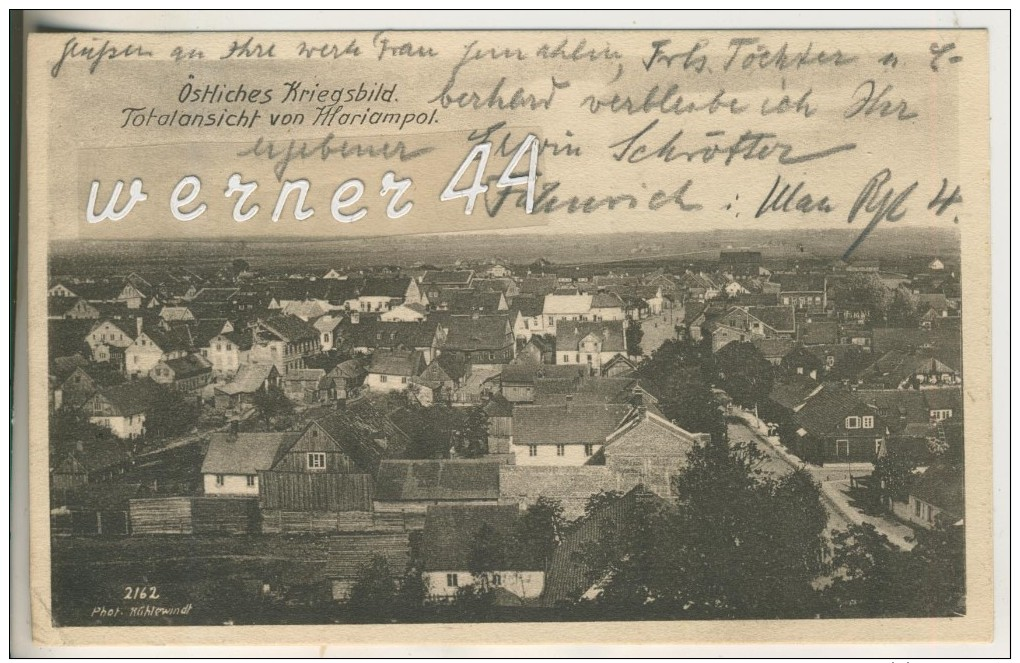 Grüßen an Ihre werte Frau Gemahlin, Frls. Töchter u. E-
Östliches Kriegsbild.
berhard verbleibe ich Ihr
Totalansicht von Mariampol.
ergebener Erwin Schrötter
werner 44
Fähnrich i. Ulan Rgt 4.
2162
Phot. Kühlewindt